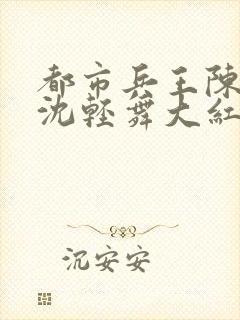 都市兵王陳
沈輕舞大紅
沉安安